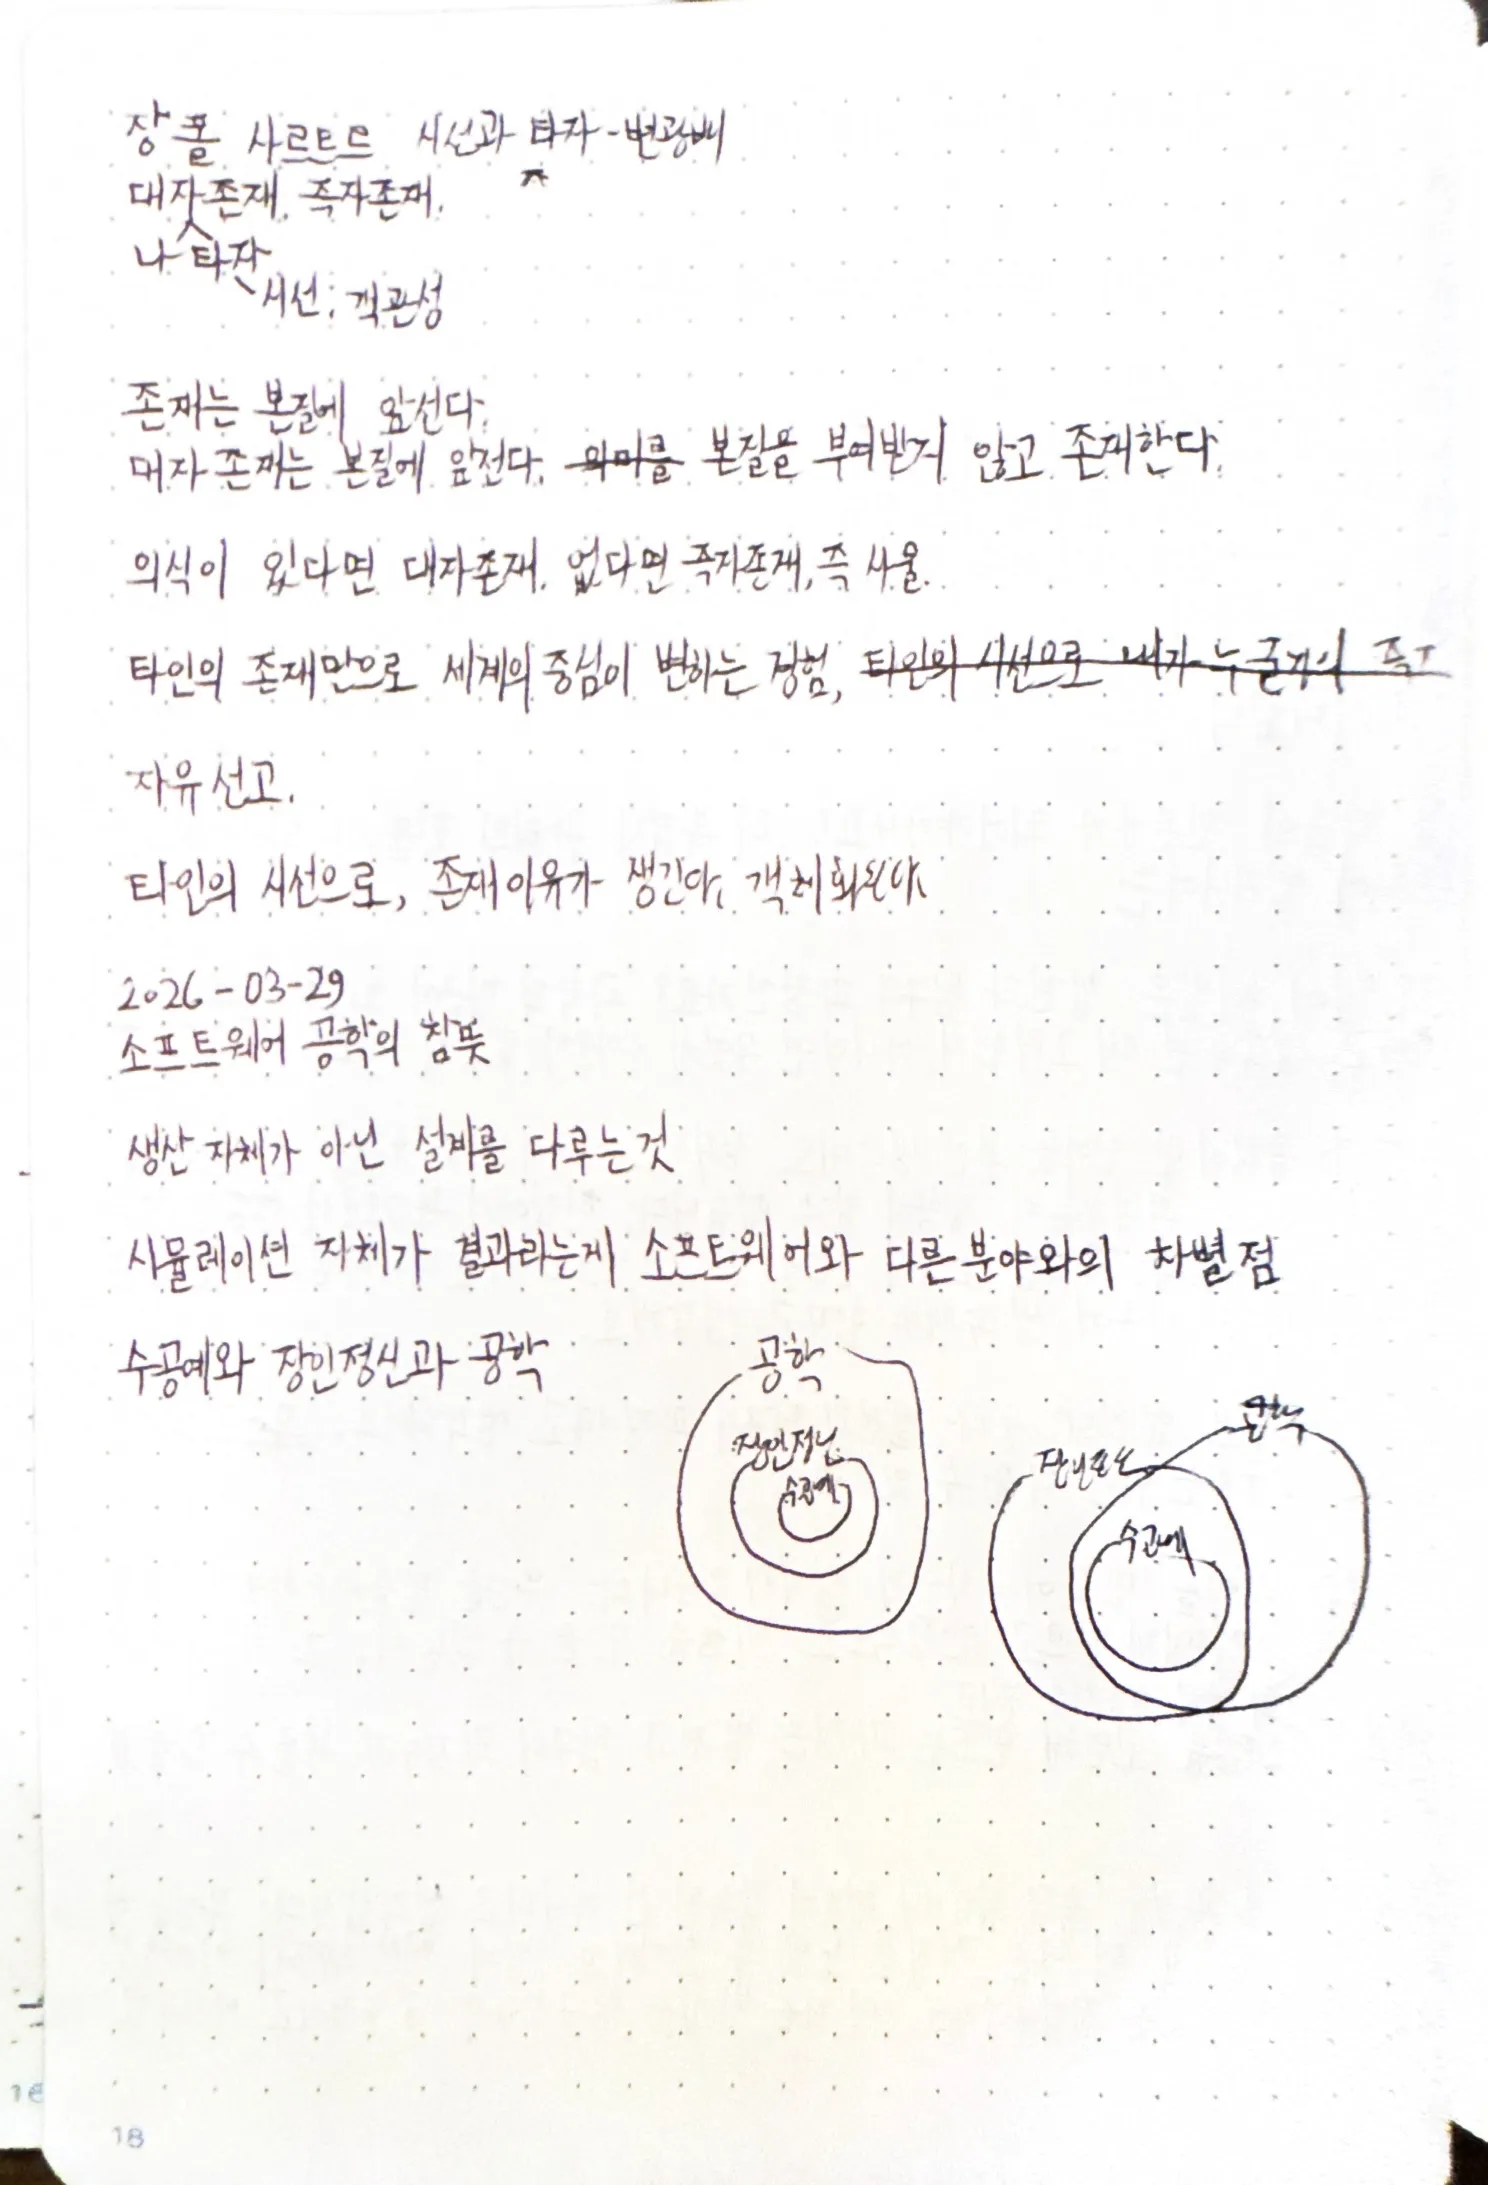 장 폴 사르트르 시선과 타자-변광배
대자존재. 즉자존재.
나 타자
시선, 객관성
존재는 본질에 앞선다.
대자존재는 본질에 앞선다. 의미를 본질을 부여받지 않고 존재한다.
의식이 있다면 대자존재. 없다면 즉자존재, 즉 사물.
타인의 존재만으로 세계의 중심이 변하는 경험, 타인의 시선으로 내가 누군가의
자유 선고.
타인의 시선으로, 존재이유가 생긴다. 객체화된다.
2026-03-29
소프트웨어 공학의 참뜻
생산 자체가 아닌 설계를 다루는 것
시뮬레이션 자체가 결과라는게 소프트웨어와 다른분야와의 차별점
수공예와 장인정신과 공학
공학
장인정신
수공예
공학
수공예
18